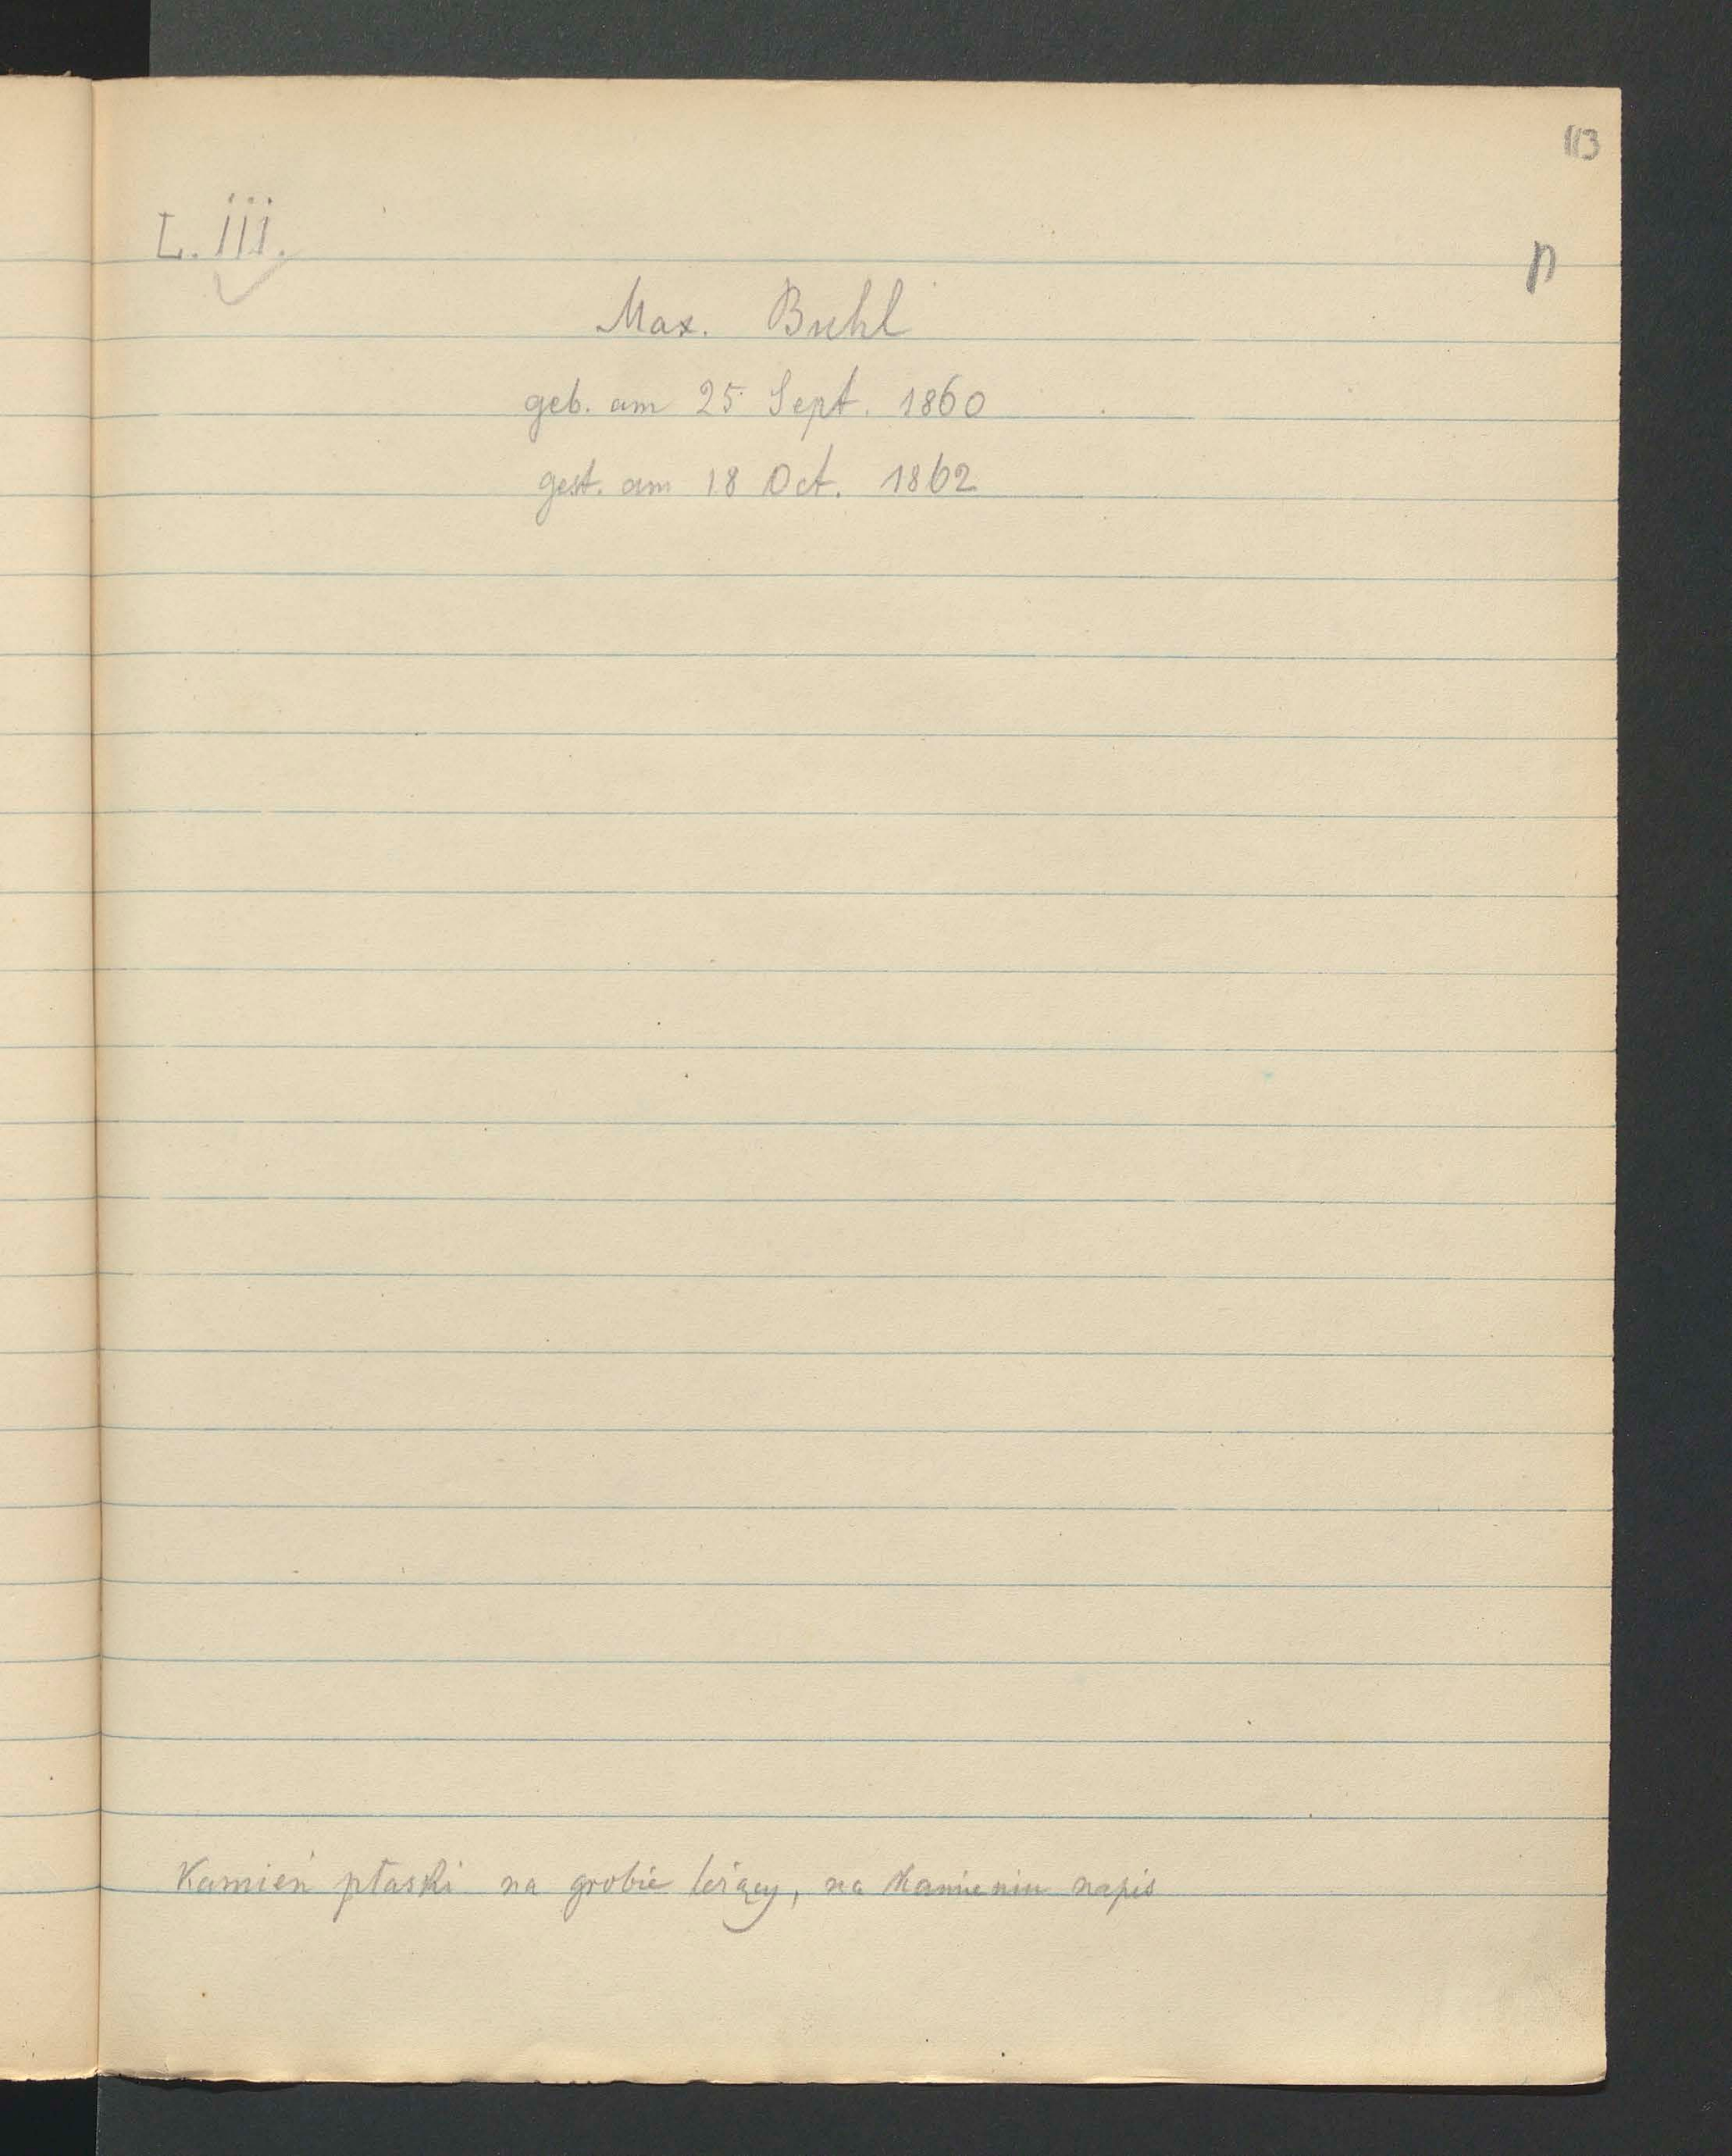 113
L. III.
n
Max. Buhl
geb. am 25 Sept. 1860
gest. am 18 Oct. 1862
Kamień płaski na grobie leżący, na kamieniu napis